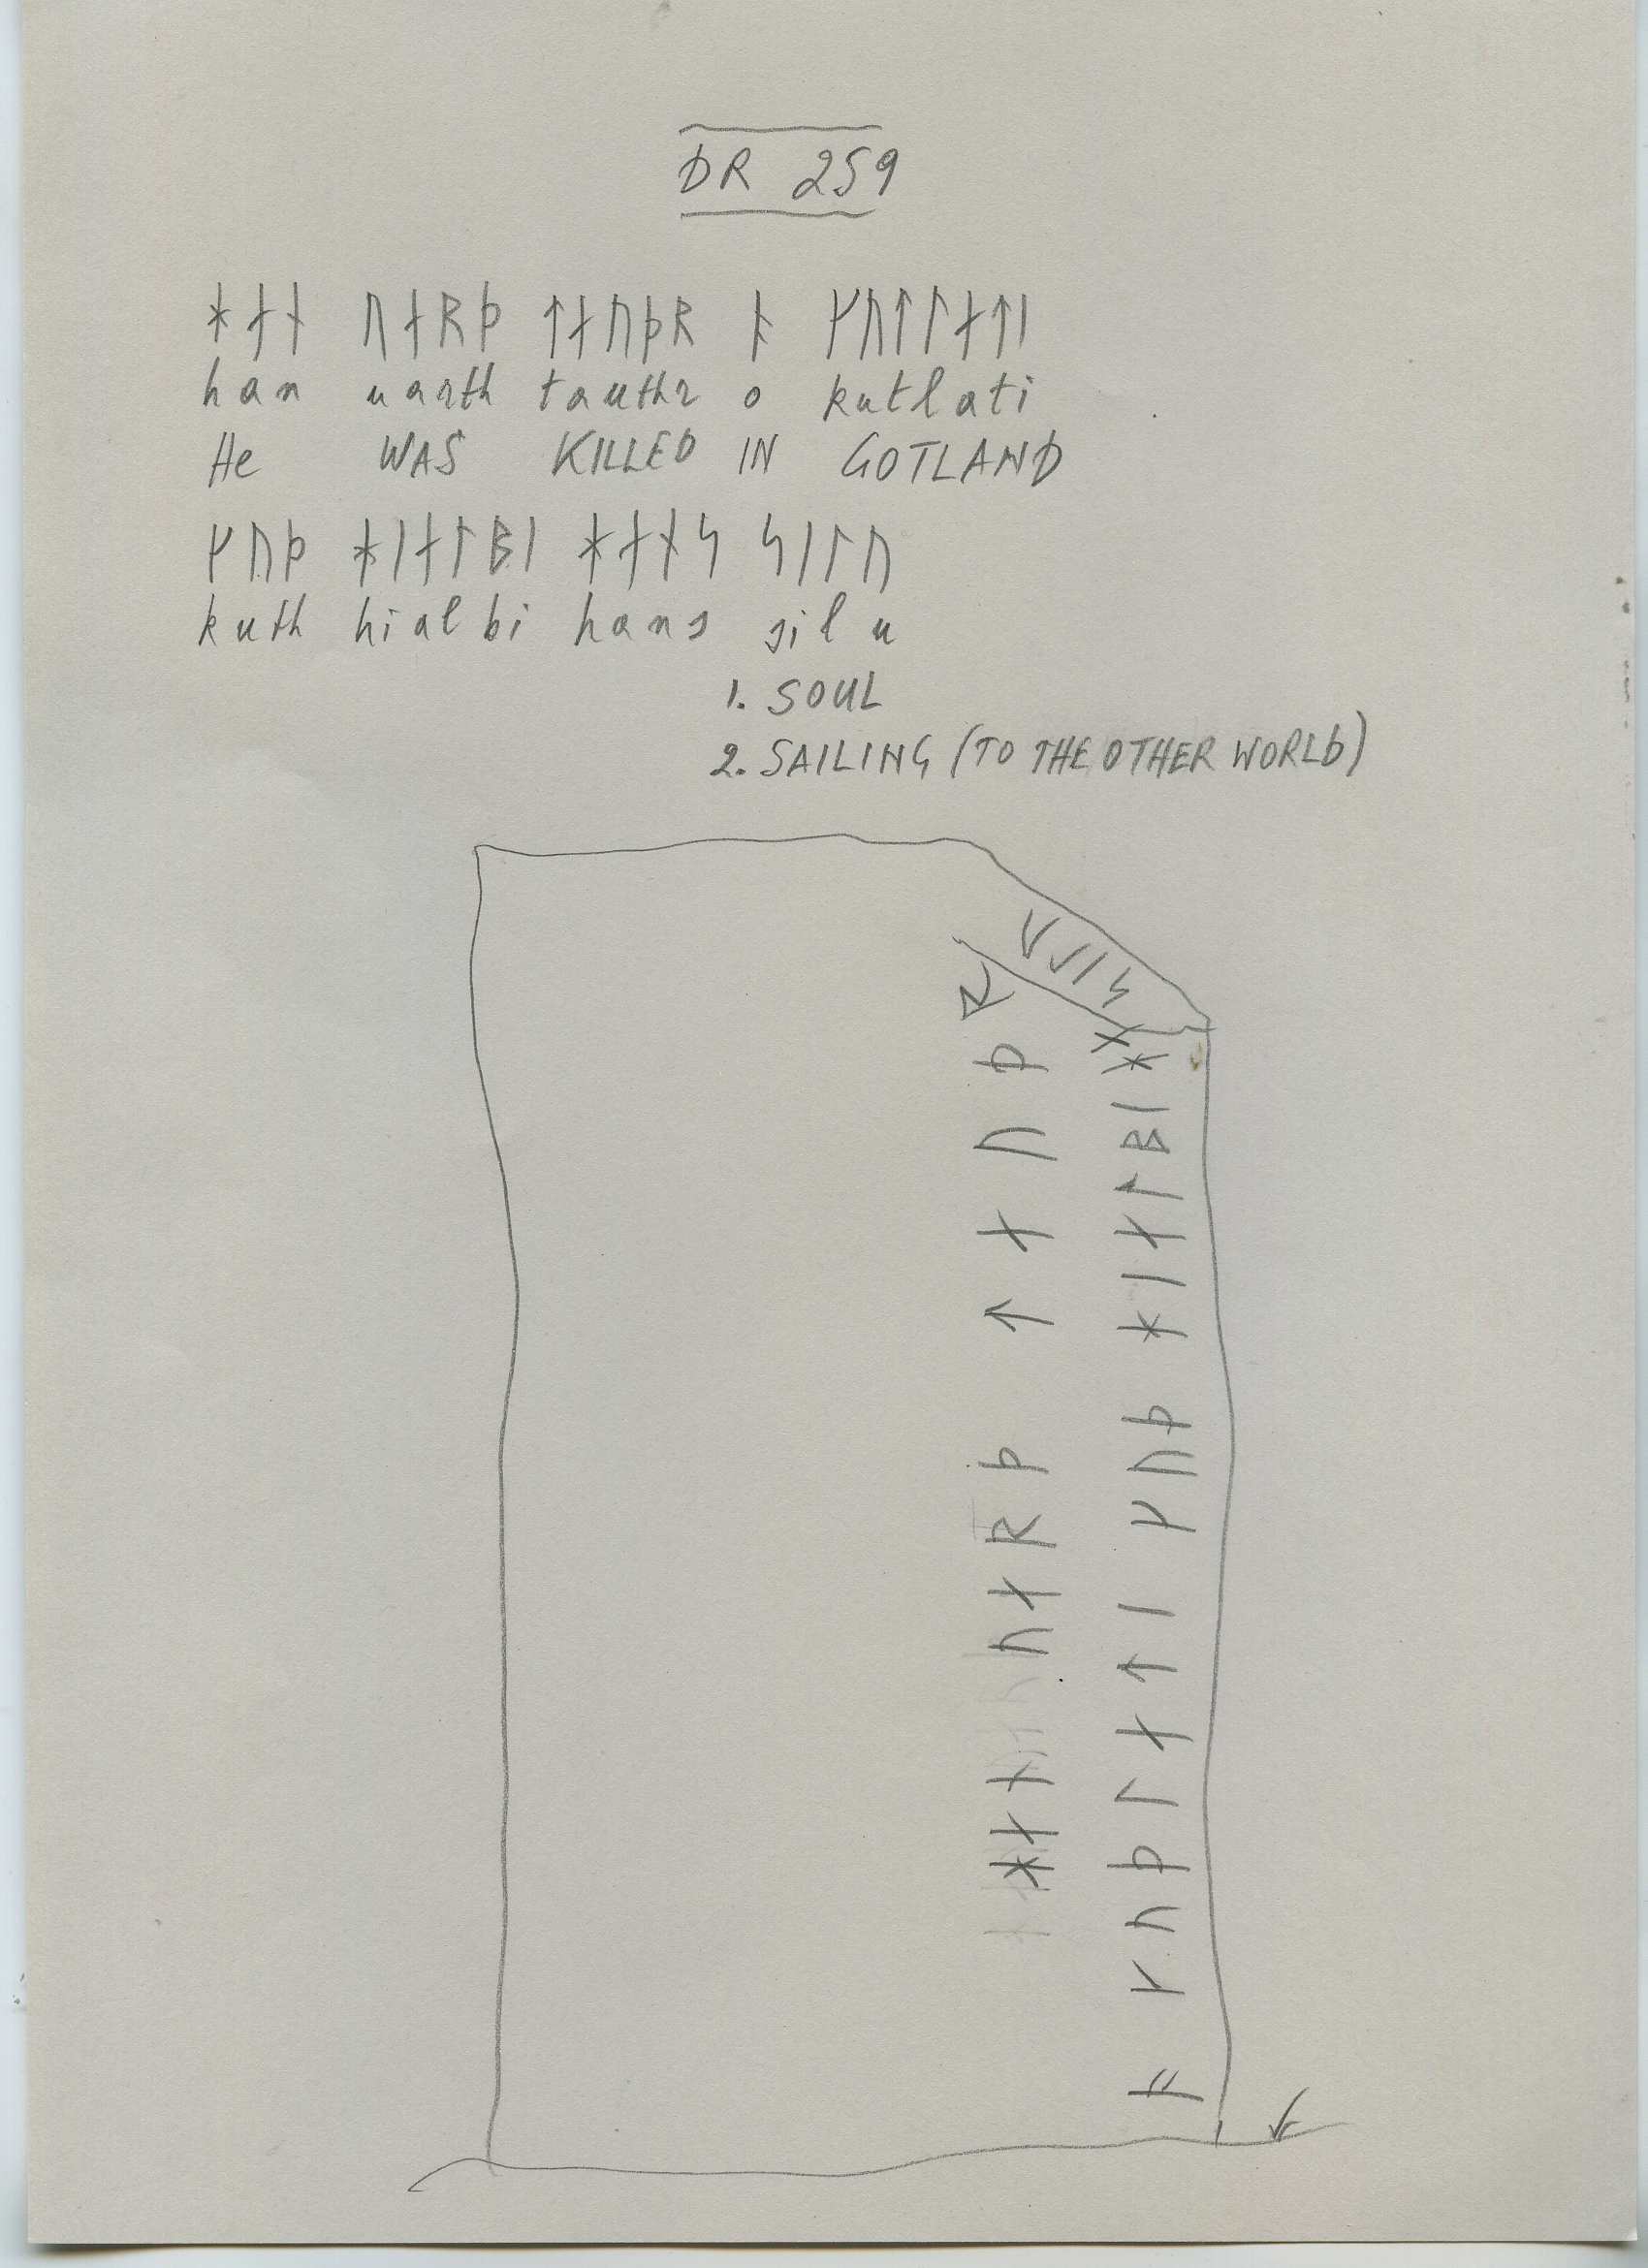 DR 259
ᚼᛅᚾ ᚢᛅᚱᚦ ᛏᛅᚢᚦᚱ ᚬ ᚴᚢᛏᛚᛅᛏᛁ
han uarth tauthr o kutlati
He WAS KILLED IN GOTLAND
ᚴᚢᚦ ᚼᛁᛅᛚᛒᛁ ᚼᛅᚾᛋ ᛋᛁᛚᚢ
kuth hialbi hans silu
1. SOUL
2. SAILING (TO THE OTHER WORLD)
ᚼᛅᚾ ᚢᛅᚱᚦ ᛏᛅᚢᚦᚱ
ᚬ ᚴᚢᚦᛚᛅᛏᛁ ᚴᚢᚦ ᚼᛁᛅᛚᛒᛁ
ᛋᛁᛚᚢ